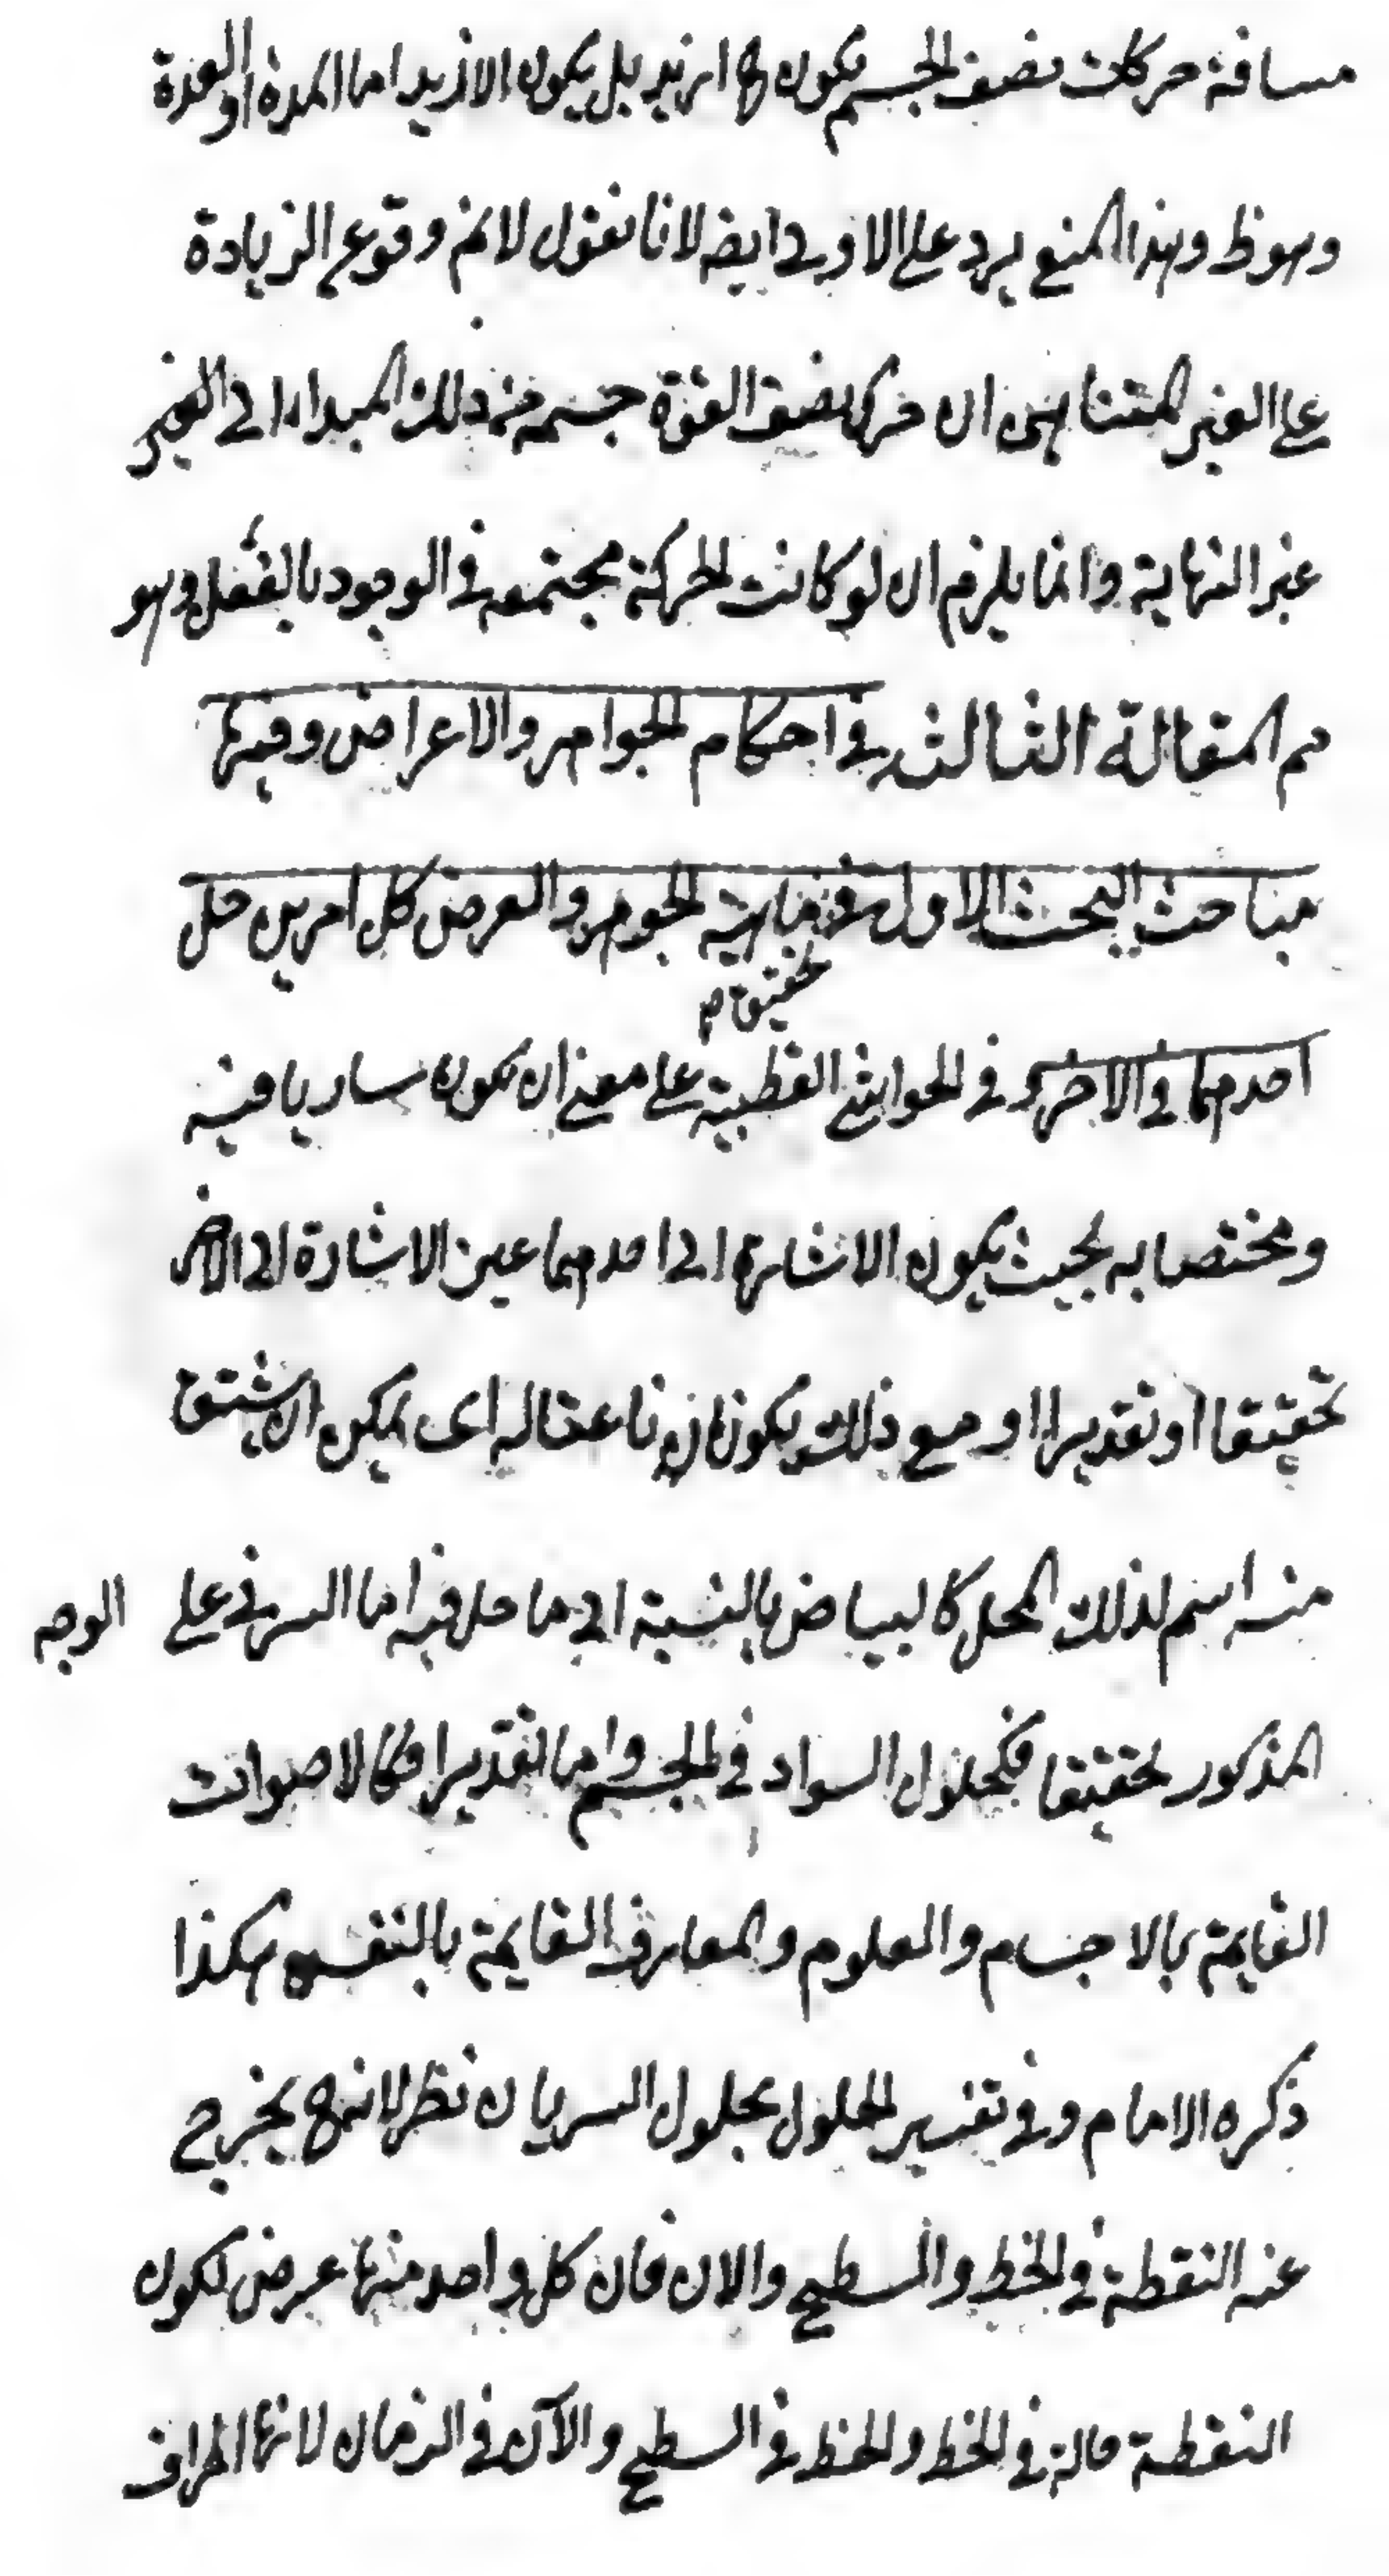 مسافة حركات نصف الجسم يكون ازيد بل يكون الازيد اما المدة او العدة
وهو ظ وهذا المنع يرد على الاولى ايضا لانا نقول لا نم وقوع الزيادة
على الغير المتناهى ان حركا نصف القوة جسمه من ذلك المبدا الى الغير
غير النهاية وانما يلزم ان لو كانت الحركة مجتمعه في الوجود بالفعل وهو
مم المقالة الثالثه في احكام الجواهر والاعراض وفيها
مباحث البحث الاول في ماهية الجوهر والعرض كل امرين حل
احدهما في الاخر و في الحواشى القطبية على معنى ان يكون ساريا فيه
ومختصا به بحيث يكون الاشارة الى احدهما عين الاشارة الى الاخر
تحقيقا او تقديرا او مع ذلك يكون ناعتا له اى يمكن ان يشتق
منه اسم لذلك المحل كالبياض بالنسبة الى ما حل فيه اما السر على الوجه
المذكور تحقيقا فكحلول السواد في الجسم واما تقديرا فكالاصوات
القايمة بالاجسام والعلوم والمعارف القايمة بالنفس هكذا
ذكره الامام وفي تفسير الحلول بحلول السريان نظر لانه ح يخرج
عنه النقطة في الخط والسطح والان فان كل واحد منها عرض لكون
النقطة حالة في الخط والخط في السطح والآن في الزمان لانها اطراف